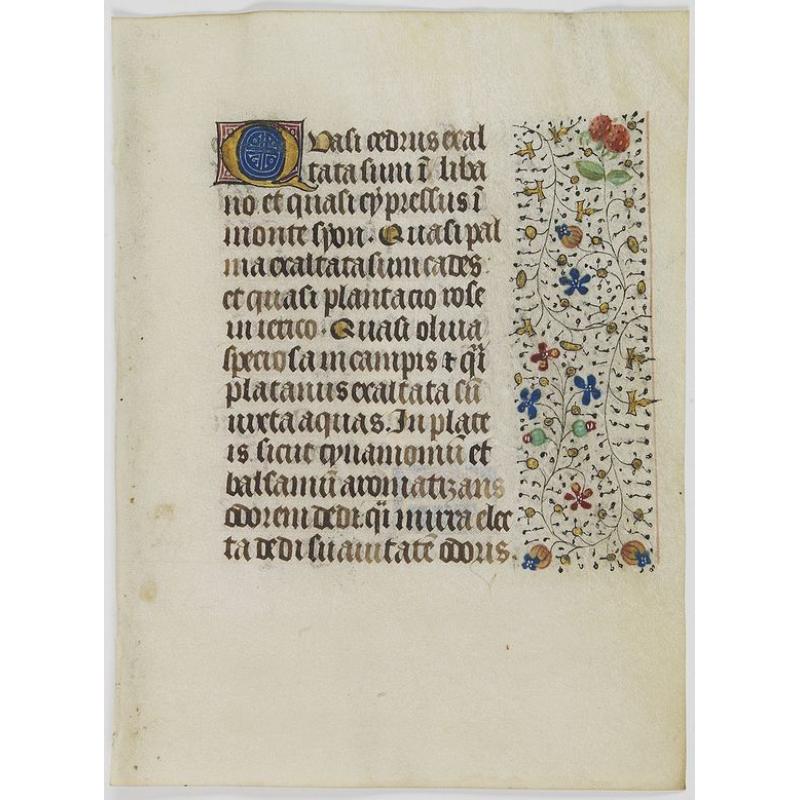 Quasi cedrus exal
tata sum ī liba
no et quasi cypressus ī
monte syon. Quasi pal
ma exaltata sum cades
et quasi plantacio rose
in ierico. Quasi oliva
speciosa in campis ⁊ q̄i
platanus exaltata sū
iuxta aquas. In plate
is sicut cynamomū et
balsamū aromatizans
odorem dedi. q̄i mirra elec
ta dedi suavitatē odoris.